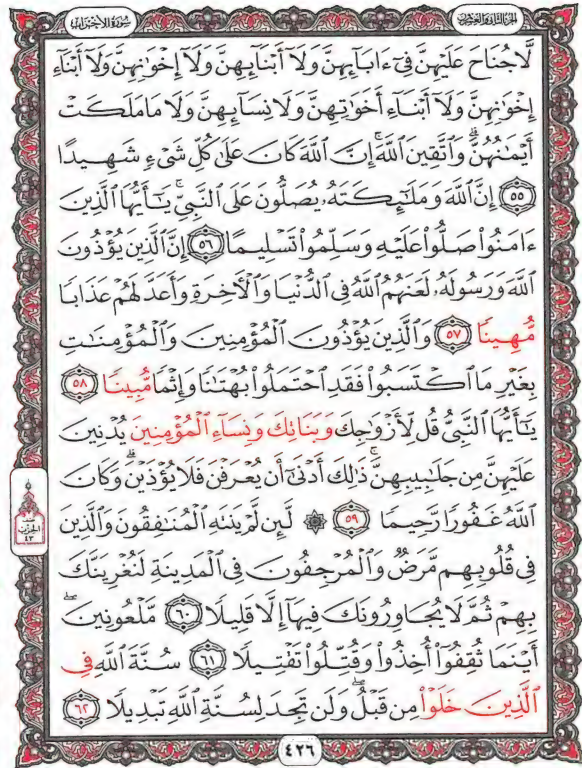 الجزء الثاني والعشرين
سورة الأحزاب
لَّا جُنَاحَ عَلَيْهِنَّ فِىٓ ءَابَآئِهِنَّ وَلَآ أَبْنَآئِهِنَّ وَلَآ إِخْوَٰنِهِنَّ وَلَآ أَبْنَآءِ
إِخْوَٰنِهِنَّ وَلَآ أَبْنَآءِ أَخَوَٰتِهِنَّ وَلَا نِسَآئِهِنَّ وَلَا مَا مَلَكَتْ
أَيْمَٰنُهُنَّ ۗ وَٱتَّقِينَ ٱللَّهَ ۚ إِنَّ ٱللَّهَ كَانَ عَلَىٰ كُلِّ شَىْءٍ شَهِيدًا
٥٥ إِنَّ ٱللَّهَ وَمَلَٰٓئِكَتَهُۥ يُصَلُّونَ عَلَى ٱلنَّبِىِّ ۚ يَٰٓأَيُّهَا ٱلَّذِينَ
ءَامَنُوا۟ صَلُّوا۟ عَلَيْهِ وَسَلِّمُوا۟ تَسْلِيمًا ٥٦ إِنَّ ٱلَّذِينَ يُؤْذُونَ
ٱللَّهَ وَرَسُولَهُۥ لَعَنَهُمُ ٱللَّهُ فِى ٱلدُّنْيَا وَٱلْـَٔاخِرَةِ وَأَعَدَّ لَهُمْ عَذَابًا
مُّهِينًا ٥٧ وَٱلَّذِينَ يُؤْذُونَ ٱلْمُؤْمِنِينَ وَٱلْمُؤْمِنَٰتِ
بِغَيْرِ مَا ٱكْتَسَبُوا۟ فَقَدِ ٱحْتَمَلُوا۟ بُهْتَٰنًا وَإِثْمًا مُّبِينًا ٥٨
يَٰٓأَيُّهَا ٱلنَّبِىُّ قُل لِّأَزْوَٰجِكَ وَبَنَاتِكَ وَنِسَآءِ ٱلْمُؤْمِنِينَ يُدْنِينَ
عَلَيْهِنَّ مِن جَلَٰبِيبِهِنَّ ۚ ذَٰلِكَ أَدْنَىٰٓ أَن يُعْرَفْنَ فَلَا يُؤْذَيْنَ ۗ وَكَانَ
ٱللَّهُ غَفُورًا رَّحِيمًا ٥٩ ۞ لَّئِن لَّمْ يَنتَهِ ٱلْمُنَٰفِقُونَ وَٱلَّذِينَ
فِى قُلُوبِهِم مَّرَضٌ وَٱلْمُرْجِفُونَ فِى ٱلْمَدِينَةِ لَنُغْرِيَنَّكَ
بِهِمْ ثُمَّ لَا يُجَاوِرُونَكَ فِيهَآ إِلَّا قَلِيلًا ٦٠ مَّلْعُونِينَ ۖ
أَيْنَمَا ثُقِفُوٓا۟ أُخِذُوا۟ وَقُتِّلُوا۟ تَقْتِيلًا ٦١ سُنَّةَ ٱللَّهِ فِى
ٱلَّذِينَ خَلَوْا۟ مِن قَبْلُ ۖ وَلَن تَجِدَ لِسُنَّةِ ٱللَّهِ تَبْدِيلًا ٦٢
نصف
الحزب
٤٣
٤٢٦